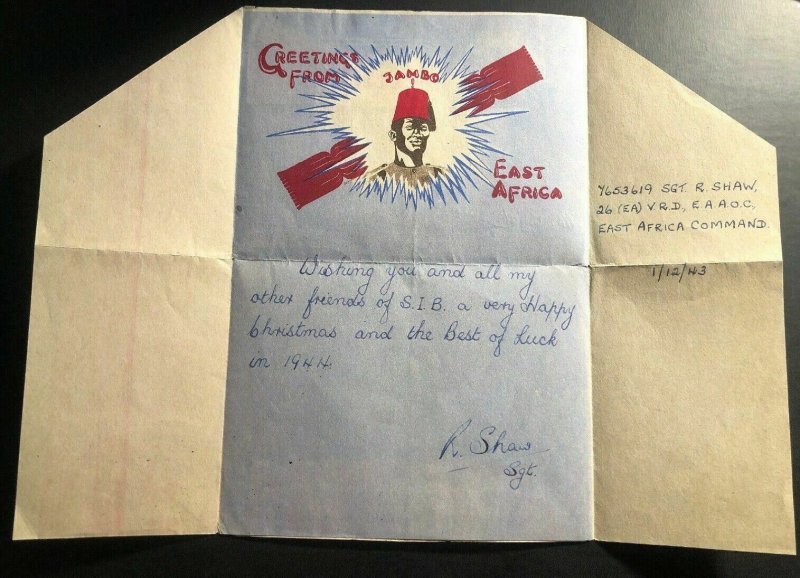 GREETINGS
FROM
JAMBO
EAST
AFRICA
7653619 SGT. R. SHAW,
26 (EA) V.R.D., E.A.A.O.C.,
EAST AFRICA COMMAND.
1/12/43
Wishing you and all my
other friends of S.I.B. a very Happy
Christmas and the Best of Luck
in 1944.
R. Shaw
Sgt.